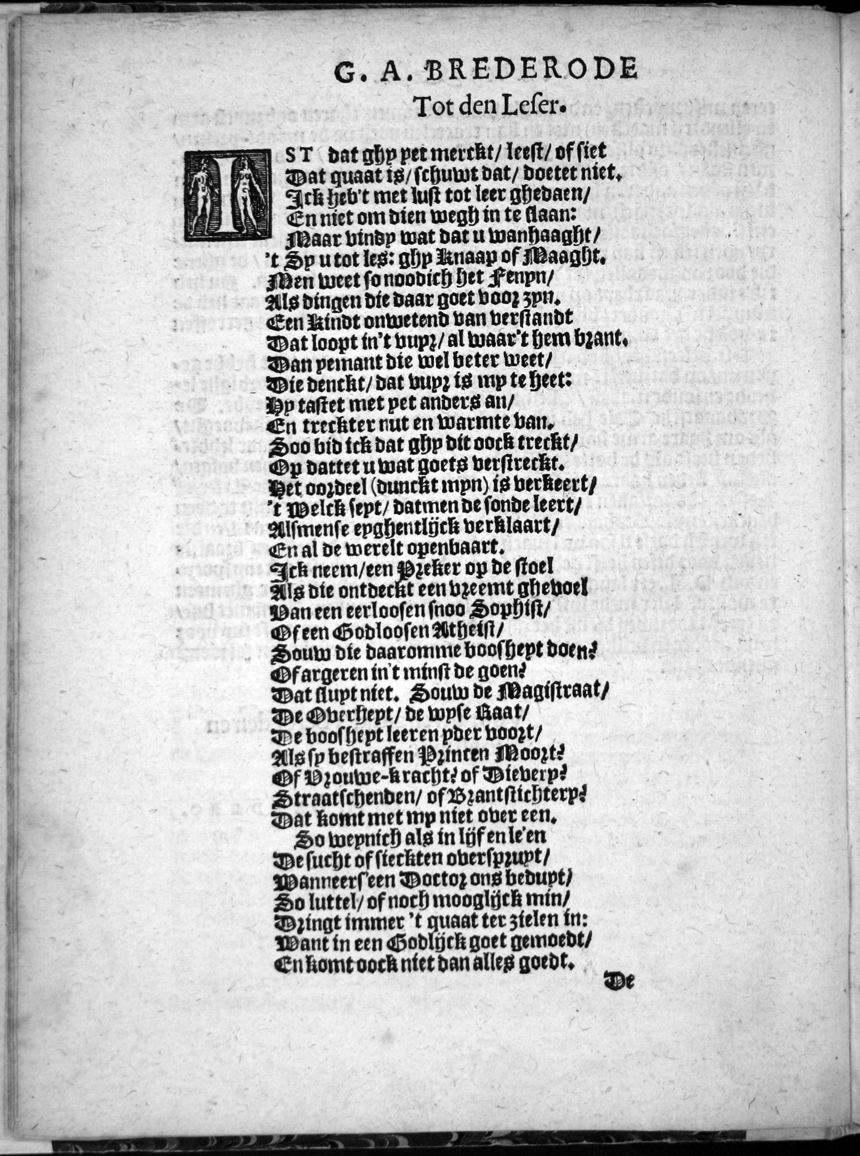 G. A. BREDERODE
Tot den Leser.
IST dat ghy yet merckt/ leest/ of siet
Dat quaat is/ schuwt dat/ doetet niet.
Ick heb't met lust tot leer ghedaen/
En niet om dien wegh in te slaan:
Maar vindy wat dat u wanhaaght/
't Sy u tot les: ghy Knaap of Maaght.
Men weet so noodich het Fenyn/
Als dingen die daar goet voor zyn.
Een Kindt onwetend van verstandt
Dat loopt in't vuyr/ al waar't hem brant.
Dan yemant die wel beter weet/
Die denckt/ dat vuyr is my te heet:
Hy tastet met yet anders an/
En treckter nut en warmte van.
Soo bid ick dat ghy dit oock treckt/
Op dattet u wat goets verstreckt.
Het oordeel (dunckt myn) is verkeert/
't Welck seyt/ datmen de sonde leert/
Alsmense eyghentlijck verklaart/
En al de werelt openbaart.
Ick neem/ een Preker op de stoel
Als die ontdeckt een vreemt ghevoel
Van een eerloosen snoo Sophist/
Of een Godloosen Atheist/
Souw die daaromme boosheyt doen?
Of argeren in't minst de goen?
Dat sluyt niet. Souw de Magistraat/
De Overheyt/ de wyse Raat/
De boosheyt leeren yder voort/
Als sy bestraffen Printen Moort?
Of Vrouwe-kracht? of Dievery?
Straatschenden/ of Brantstichtery?
Dat komt met my niet over een.
So weynich als in lijf en le'en
De sucht of sieckten overspruyt/
Wanneers'een Doctor ons beduyt/
So luttel/ of noch mooglijck min/
Dringt immer 't quaat ter zielen in:
Want in een Godlijck goet gemoedt/
En komt oock niet dan alles goedt.
De